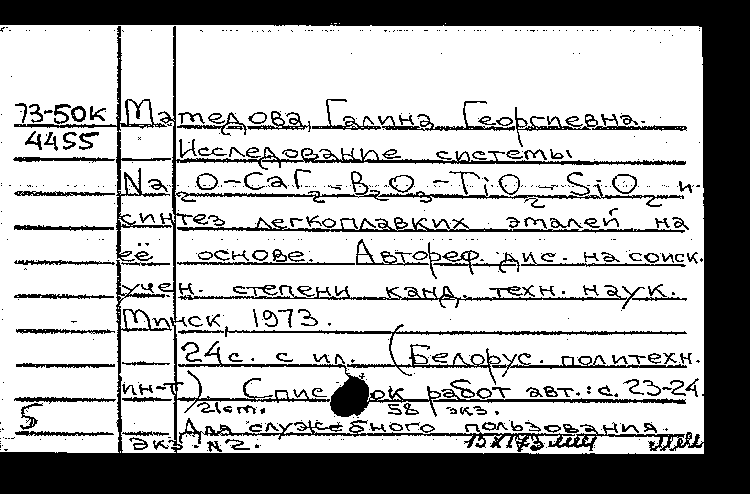 73-50к Мамедова, Галина Георгиевна.
4455 Исследование системы
Na₂O-CaF₂-B₂O₃-TiO₂-SiO₂ и
синтез легкоплавких эмалей на
её основе. Автореф. дис. на соиск.
учен. степени канд. техн. наук.
Минск, 1973.
24с. с ил. (Белорус. политехн.
ин-т). Список работ авт.: с. 23-24.
21см. 58 экз.
5 Для служебного пользования.
экз. №2.